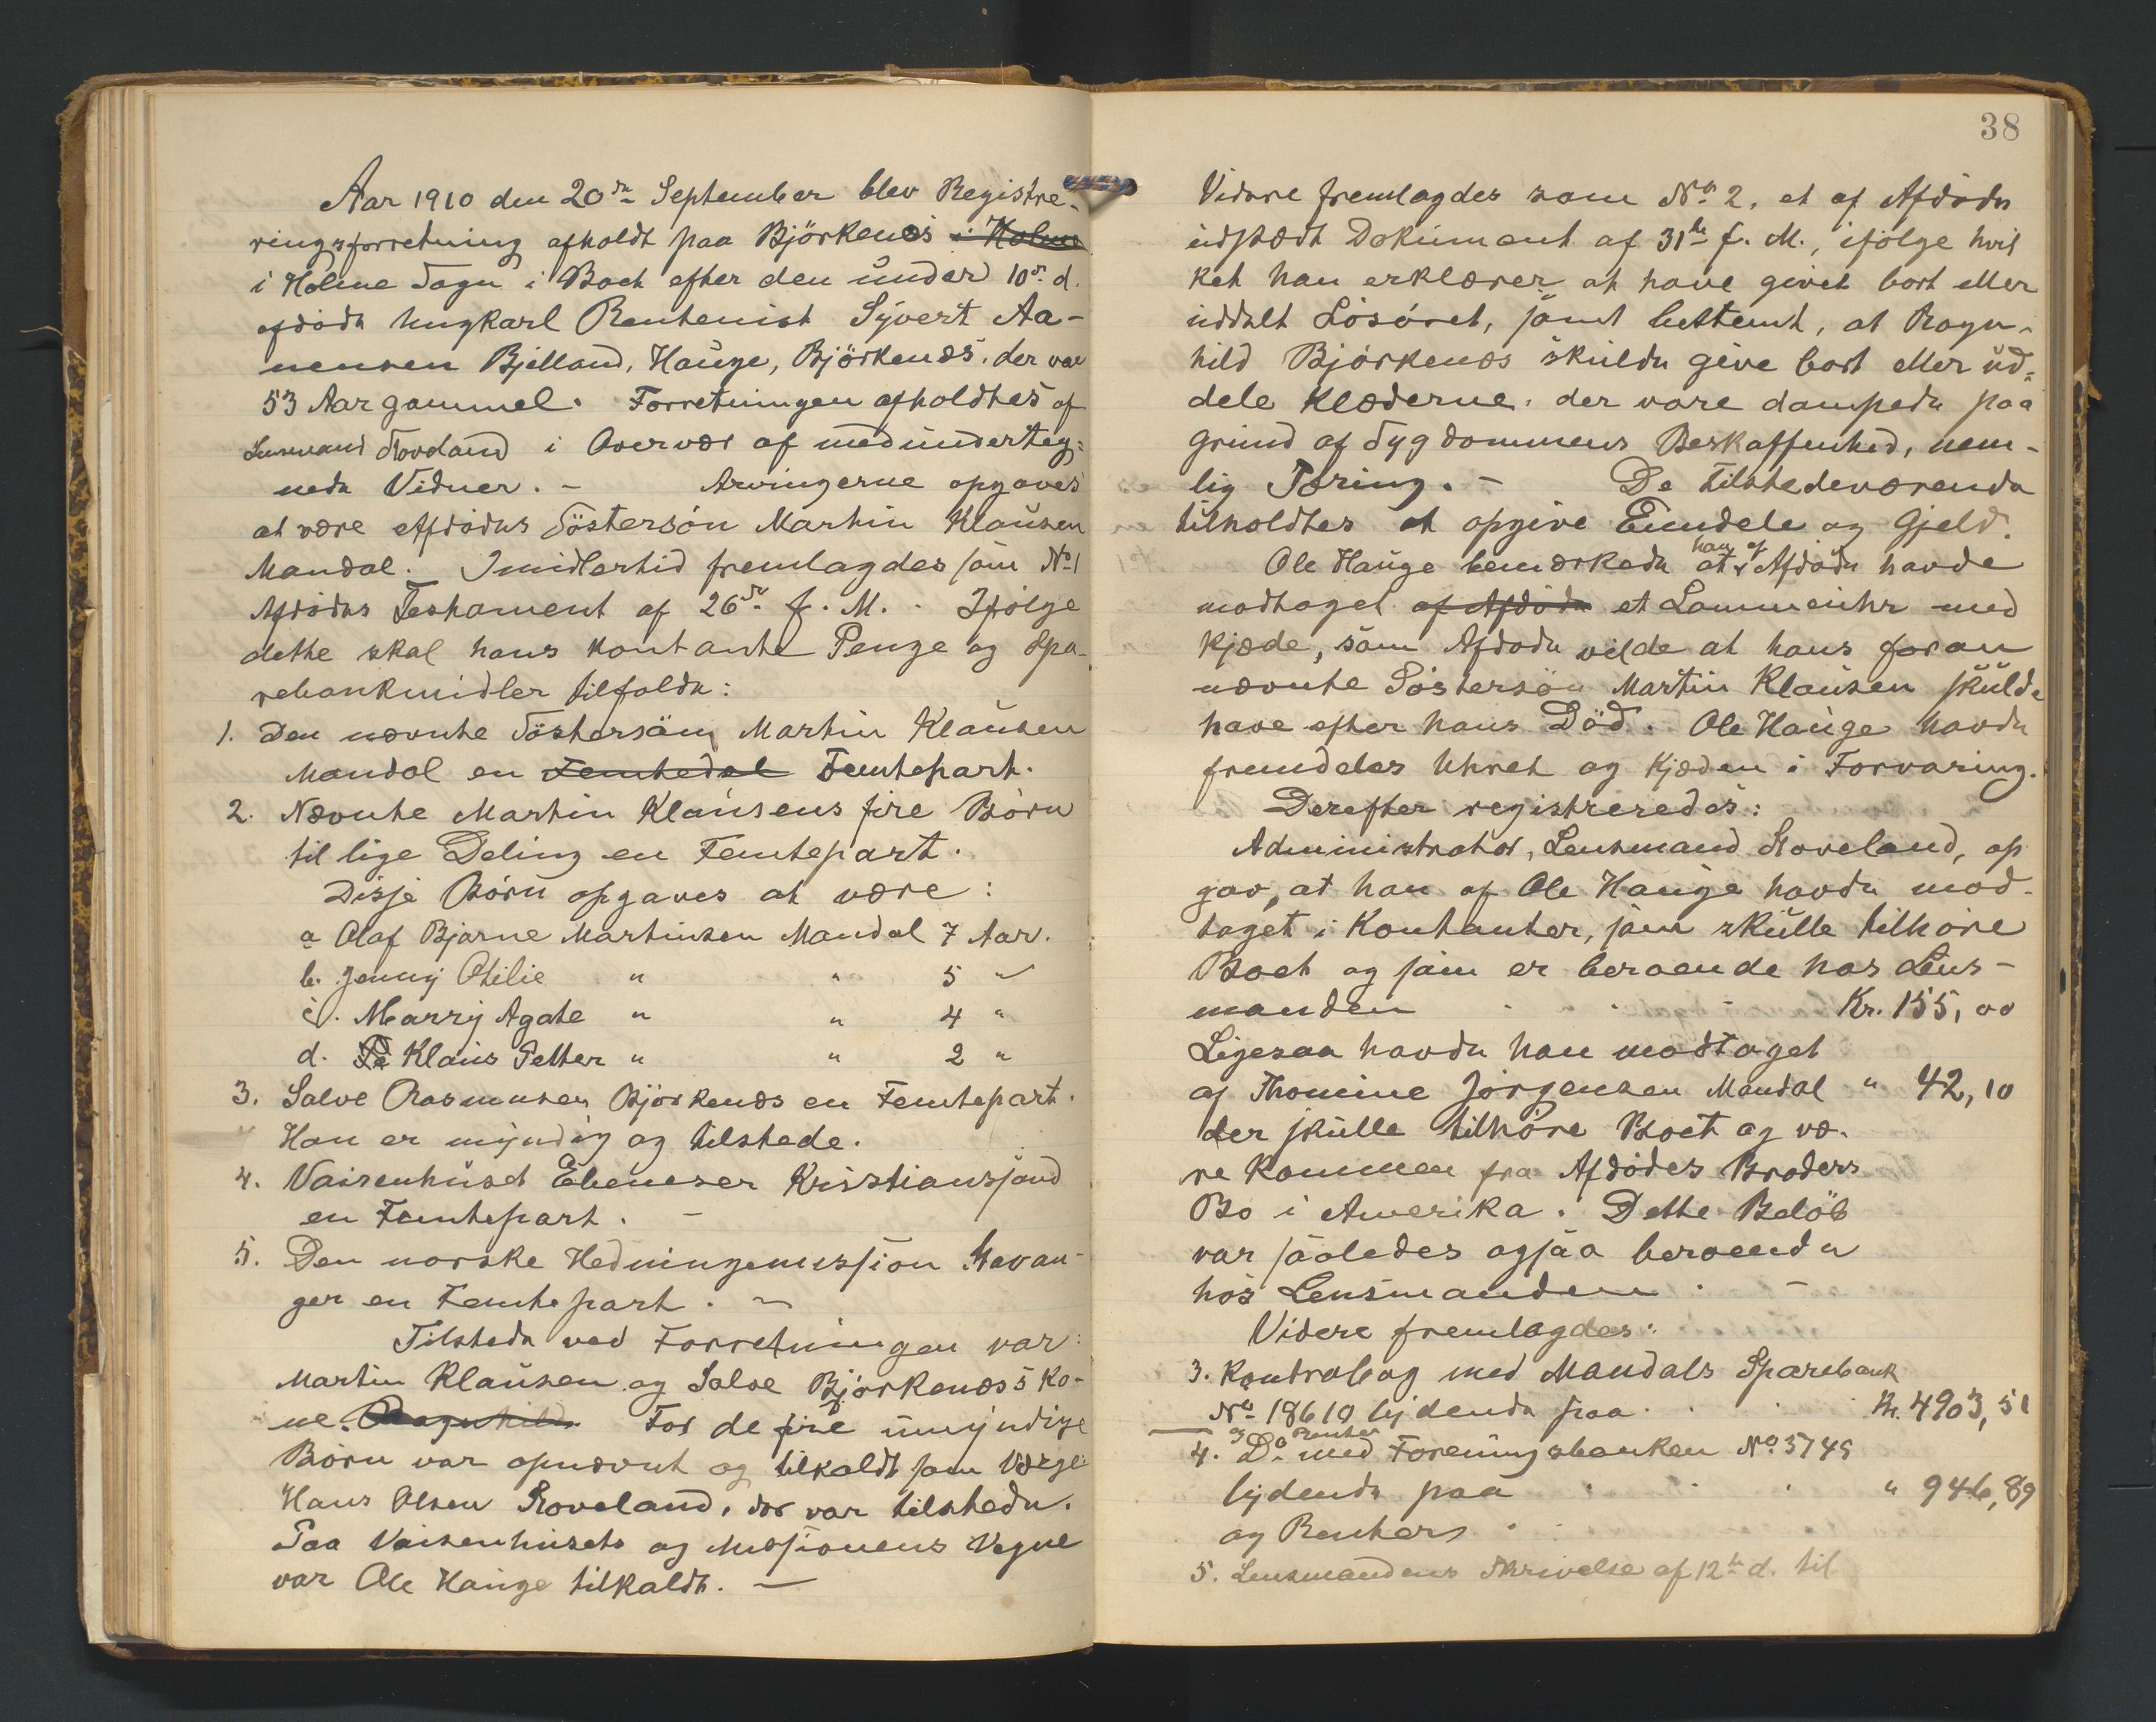 Aar 1910 den 20de September blev Registre-
ringsforretning afholdt paa Björkenes i Holme
i Holme Sogn i Boet efter den under 10de d.
afdøde Ungkarl Rentenist Syvert Aa-
nensen Bjelland, Hauge, Björkenæs, der var
53 Aar gammel. Forretningen afholdtes af
Lensmand i Overvær af medunderteg-
nede Vidner. - Arvingerne opgaves
at være Afdødes Söstersön Martin Klausen
Mandal. Imidlertid fremlagdes som No 1
Afdødes Testament af 26de f. M. Ifølge
dette skal hans kontante Penge og Spa-
rebankmidler tilfalde:
1. Den nævnte Söstersön Martin Klausen
Mandal en Femtedel Femtepart.
2. Nævnte Martin Klausens fire Börn
til lige Deling en Femtepart.
Disse Börn opgaves at være:
a Olaf Bjarne Martinsen Mandal 7 Aar.
b. Jenny Otilie " " 5 "
c. Marry Agate " " 4 "
d. Pe Klaus Petter " " 2 "
3. Salve Rasmusen Björkenæs en Femtepart.
Han er myndig og tilstede.
4. Vaisenhuset Ebeneser Kristianssand
en Femtepart. -
5. Den norske Hedningemission Stavan-
ger en Femtepart. -
Tilstede ved Forretningen var:
Martin Klausen og Salve Björkenæs's Ko-
ne. Ragnhild For de fire umyndige
Börn var opnævnt og tilkaldt som Værge:
Hans Olsen Skoveland, der var tilstede.
Paa Vaisenhusets og Missionens Vegne
var Ole Hauge tilkaldt. -
38
Vidare fremlagdes som No 2, et af Afdøde
udstædt Dokument af 31te f. M., ifölge hvil
ket han erklærer at have givet bort eller
uddelt Lösöret, samt bestemt, at Ragn-
hild Björkenæs skulde give bort eller ud-
dele Klæderne, der vare dampede paa
Grund af Sygdommens Beskaffenhed, nem-
lig Tæring. - De Tilstedeværende
tilholdtes at opgive Eiendele og Gjeld.
Ole Hauge bemærkede at han af Afdøde havde
modtaget af Afdøde et Lommeuhr med
Kjæde, som Afdøde vilde at hans foran
nævnte Söstersön Martin Klausen skulde
have efter hans Död. Ole Hauge havde
fremdeles Uhret og Kjæden i Forvaring.
Derefter registreredes:
Administrator, Lensmand Skoveland, op
gav, at han af Ole Hauge havde mod-
taget i Kontanter, som skulle tilhöre
Boet og som er beroende hos Lens-
manden Kr. 155,00
Ligesaa havde han modtaget
af Thomine Jörgensen Mandal " 42,10
der skulle tilhöre Boet og væ-
re kommen fra Afdödes Broders
Bo i Amerika. Dette Belöb
var saaledes ogsaa beroende
hos Lensmanden. -
Videre fremlagdes:
3. Kontrabog med Mandals Sparebank
No 18610 lydende paa Kr. 4903,51
og Renter
4. Do med Foreningsbanken No 5745
lydende paa " 946,89
og Renter
5. Lensmandens Skrivelse af 12te d. til